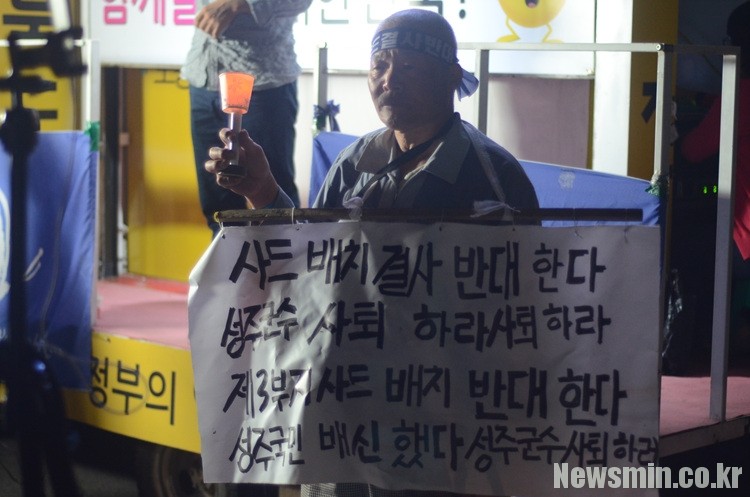 함께
결사반대
사드 배치 결사 반대 한다
성주군수 사퇴 하라 사퇴하라
제3부지 사드 배치 반대 한다
성주국민 배신 했다 성주군수 사퇴하라
정부의
Newsmin.co.kr